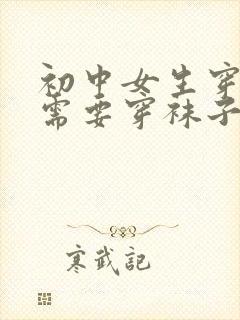 初中女生穿
需要穿袜子
寒武記